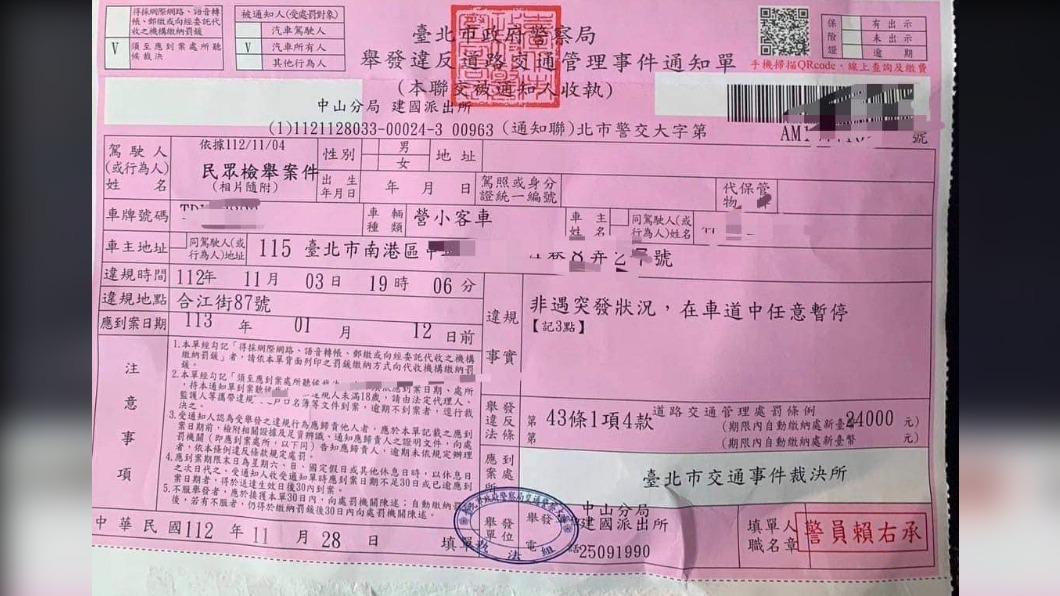 得採網際網路、語音轉
帳、郵繳或向經委託代收
之機構繳納罰鍰
V 須至應到案處所聽
候裁決
被通知人(受處罰對象)
汽車駕駛人
V 汽車所有人
其他行為人
臺北市政府警察局
舉發違反道路交通管理事件通知單
(本聯交被通知人收執)
保險證
有出示
未出示
逾期
手機掃描QRcode,線上查詢及繳費
中山分局 建國派出所
(1)1121128033-00024-3 00963 (通知聯)北市警交大字第
AM1
號
駕駛人
(或行為人)
姓名
依據112/11/04
民眾檢舉案件
(相片隨附)
性別
男
女
地址
出生
年月日
年 月 日
駕照或身分
證統一編號
代保管
物
車牌號碼
車輛
種類
營小客車
車主
姓名
同駕駛人(或
行為人)姓名
車主地址
同駕駛人(或
行為人)地址
115 臺北市南港區
號
違規時間 112年 11月 03日 19時 06分
違規地點 合江街87號
應到案日期 113 年 01 月 12 日前
違規事實
非遇突發狀況,在車道中任意暫停
【記3點】
注意事項
1.本單經勾記「得採網際網路、語音轉帳、郵繳或向經委託代收之機構
繳納罰鍰」者,請依本單背面列印之罰鍰繳納方式向代收機構繳納罰
鍰。
2.本單經勾記「須至應到案處所聽候裁決
,持本通知單到案聽候
決之。
3.受通知人認為受舉發之違規行為應歸責他人者,應於本單記載之應到
案日期前,檢附相關證據及足資辨識、通知應歸責人之證明文件,向處
罰機關(即應到案處所,以下同)告知應歸責人,逾期未依規定辦理
者,依本條例違反條款規定處罰。
4.應到案期限末日為星期六、日、國定假日或其他休息日時,以休息日
之次日代之。受通知人收受通知單時應到案日期不足30日或已逾應到
案日期者,得於送達生效日後30日內到案。
5.不服舉發者,應於接獲本單30日內,向處罰機關陳述;自動繳納罰鍰
後,若有不服者,仍得於繳納罰鍰後30日內向處罰機關陳述。
舉發
違反
法條
第 43條1項4款
第
道路交通管理處罰條例
(期限內自動繳納處新臺幣24000 元)
(期限內自動繳納處新臺幣 元)
應到
案處
所
臺北市交通事件裁決所
舉發
單位
舉發
電話
中山分局
建國派出所
25091990
填單人
職名章
警員賴右承
中華民國112 年 11 月 28 日 填單